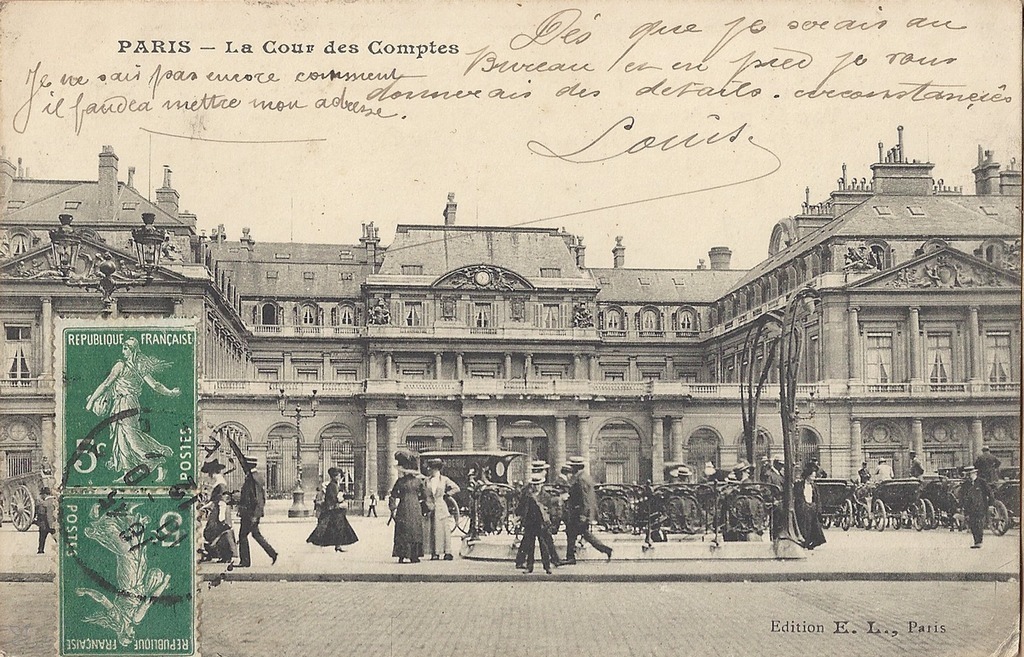 PARIS – La Cour des Comptes
Je ne sais pas encore comment
il faudra mettre mon adresse.
Dès que je serais au
Bureau et en pied je vous
donnerais des details. circonstanciés
Louis.
REPUBLIQUE FRANÇAISE
5c POSTES
POSTES
REPUBLIQUE FRANÇAISE
Edition E. L., Paris